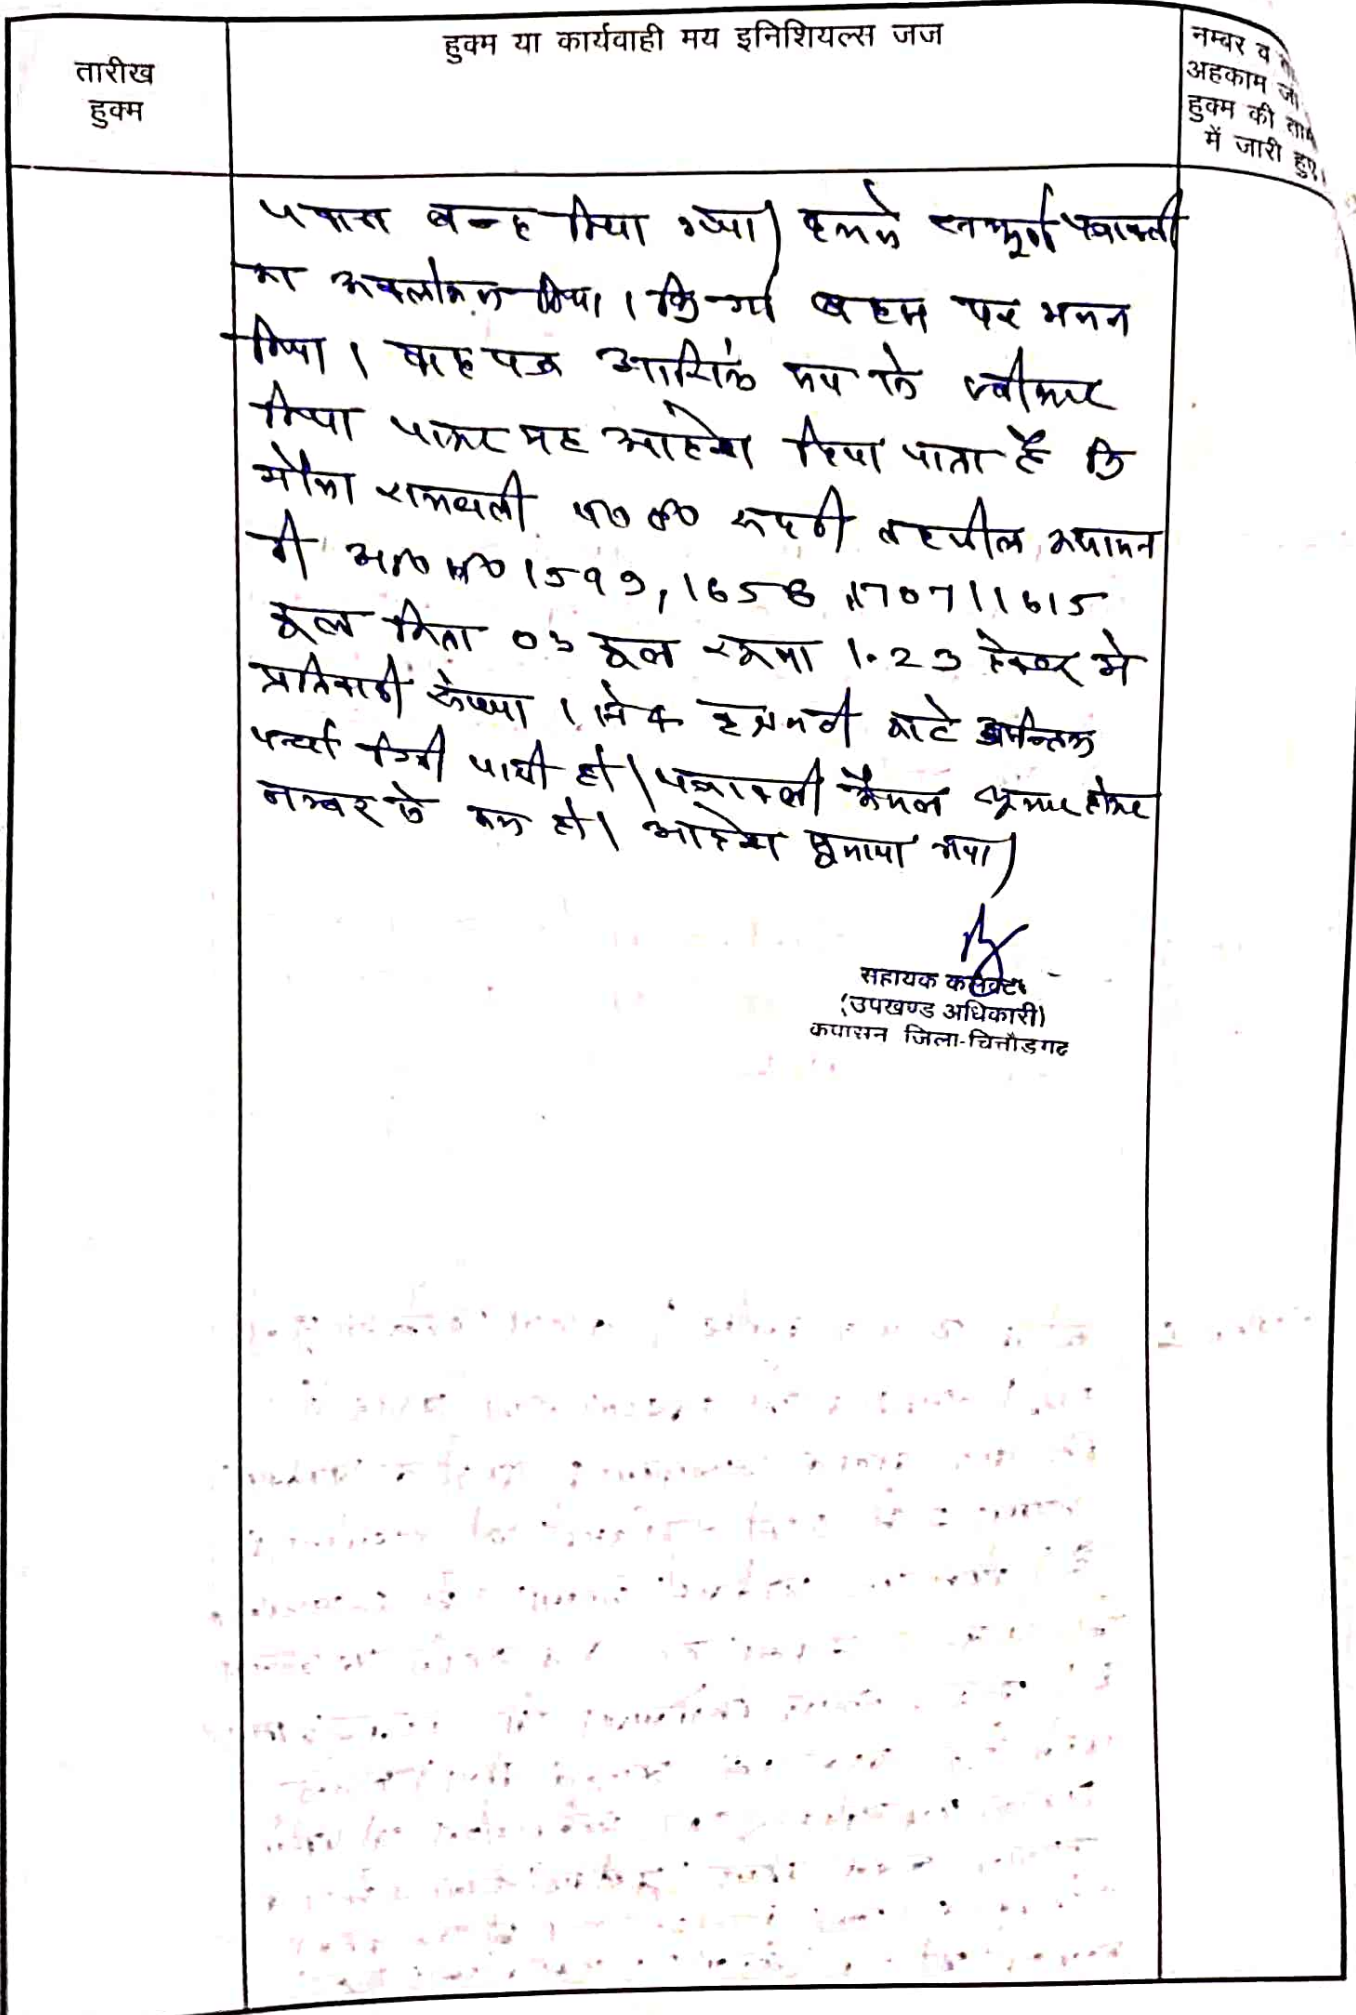 तारीख
हुक्म
हुक्म या कार्यवाही मय इनिशियल्स जज
नम्बर व
अहकाम जो
हुक्म की
में जारी हुए।
बन्द किया गया। हमने सम्पूर्ण पत्रावली
का अवलोकन किया। की गई बहस पर मनन
किया। वाद पत्र आंशिक रूप से स्वीकार
किया जाकर यह आदेश दिया जाता है कि
मौजा रामथली प०ह० रूपदी तहसील कपासन
की आ०न० 1599, 1658, 1707/1615
कुल किता 03 कुल रकबा 1.23 हेक्टर में
प्रतिवादी संख्या 1
पर्चा डिक्री जारी हो। पत्रावली फैसल शुमार होकर
नम्बर से कम हो। आदेश सुनाया गया।
सहायक कलेक्टर
(उपखण्ड अधिकारी)
कपासन जिला-चित्तौडगढ